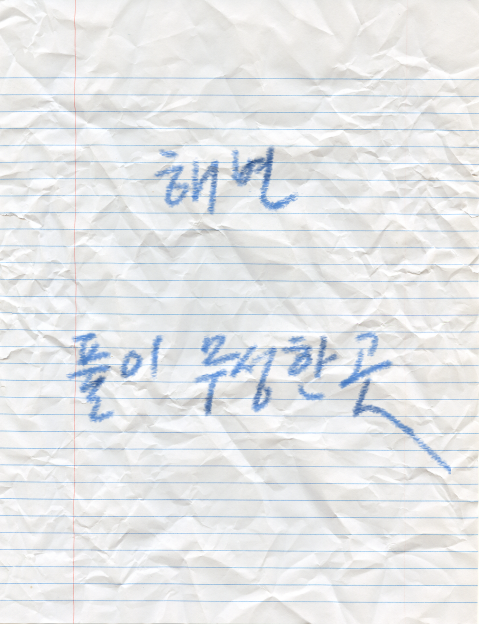 해변
풀이 무성한 곳